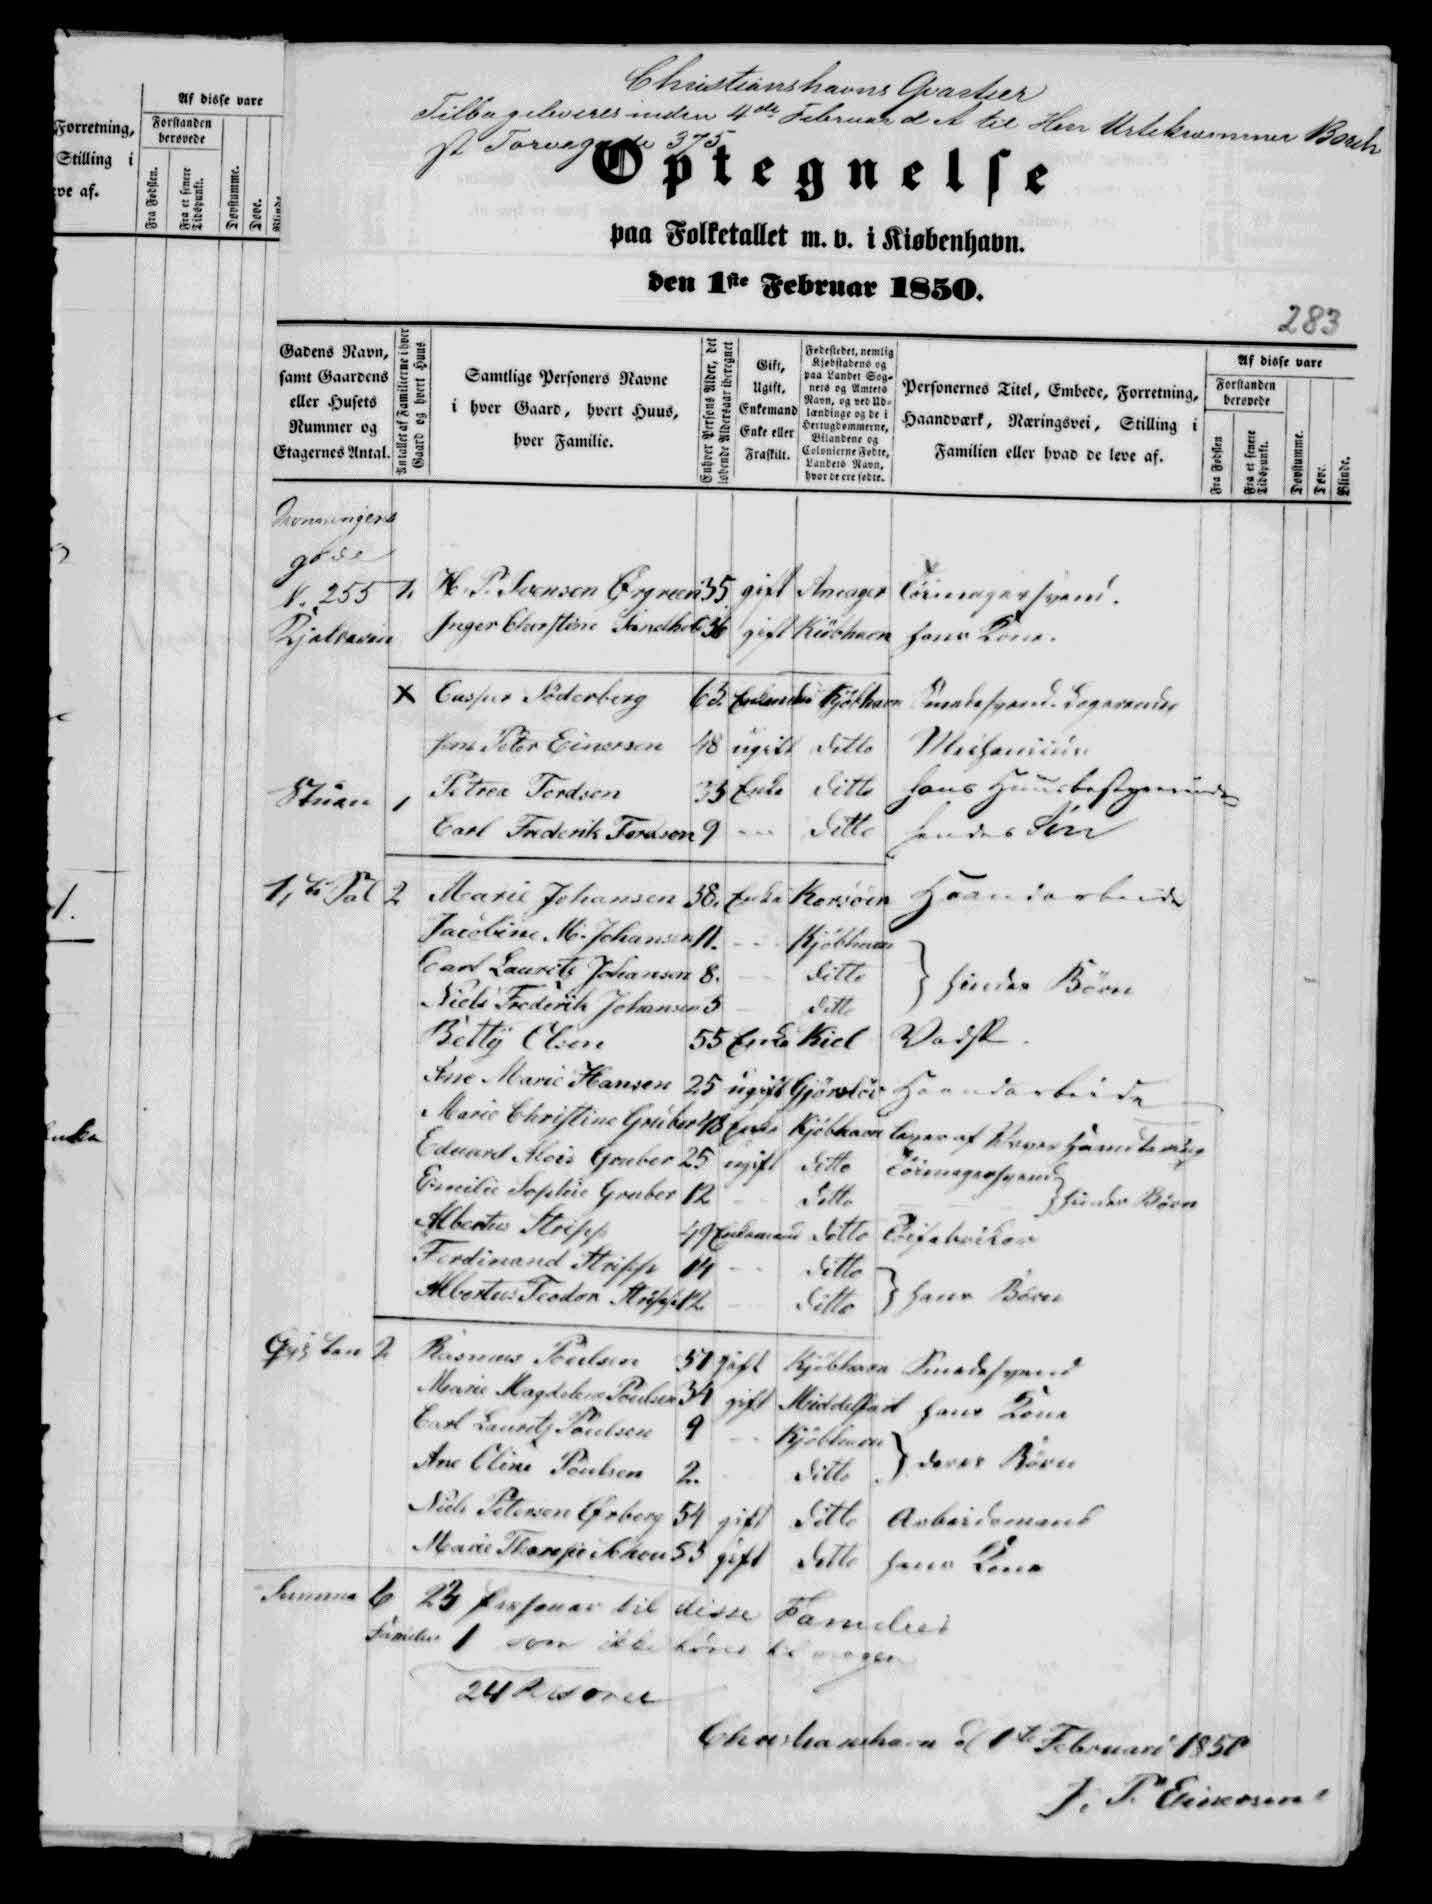 Christianshavns Qvarteer
Tilbageleveres inden 4de Februar d A til Herr Urtekræmmer Borch
St Torvegade 375
Optegnelse
paa Folketallet m. v. i Kiøbenhavn.
den 1ste Februar 1850.
283
Forretning,
Stilling i
ve af.
Af disse vare
Forstanden berøvede
Fra Fødslen.
Fra et senere Tidspunkt.
Døvstumme.
Døve.
Blinde
Gadens Navn, samt Gaardens eller Husets Nummer og Etagernes Antal.
Antallet af Familierne i hver Gaard og hvert Huus
Samtlige Personers Navne i hver Gaard, hvert Huus, hver Familie.
Enhver Persons Alder, det løbende Aldersaar iberegnet
Gift, Ugift, Enkemand Enke eller Fraskilt.
Fødestedet, nemlig Kjøbstadens og paa Landet Sognets og Amtets Navn, og ved Udlændinge og de i Hertugdømmerne, Bilandene og Colonierne Fødte, Landets Navn, hvor de ere fødte.
Personernes Titel, Embede, Forretning, Haandværk, Næringsvei, Stilling i Familien eller hvad de leve af.
Af disse vare
Forstanden berøvede
Fra Fødslen
Fra et senere Tidspunkt.
Døvstumme.
Døve.
Blinde.
Dronningens
gade
N. 255 H. P. Svensen Ørgreen 35 gift Amager Tøimagersvend.
Inger Christine 36 gift Kiøbhavn hans Kone.
x Casper Söderberg 63 Kjøbhavn Smedesvend Logerende
Jens Peter Einersen 48 ugift ditto
Stuen 1 Petrea Tordsen 35 Enke ditto hans Huusbestyrerinde
Carl Frederik Tordsen 9 --- ditto hendes Søn
1ste Sal 2 Marie Johansen 38. Enke Korsöer Haandarbeide
Jacobine M. Johansen 11. --- Kjöbhavn
Carl Lauritz Johansen 8. --- ditto } hendes Børn
Niels Frederik Johansen 5 ditto
Betty Olsen 55 Enke Kiel Vadsk.
Ane Marie Hansen 25 ugift Haandarbeide
Marie Christine Gruber 48 Enke Kjöbhavn lever af Handtering
Eduard Alois Gruber 25 ugift ditto Tøimagersvend
Emilie Sophie Gruber 12 -- ditto } hendes Børn
Albertus Stripp 49 Enkemand ditto Tøifabrikør
Ferdinand Stripp 14 -- ditto
Albertus Teodor Stripp 12 ditto } hans Børn
Qvisten 2 Rasmus Poulsen 51 gift Kjöbhavn Smedesvend
Marie Magdelene Poulsen 34 gift Middelfart hans Kone
Carl Lauritz Poulsen 9 -- Kjöbhavn
Ane Oline Poulsen 2. ditto } deres Børn
Niels Petersen Ørberg 54 gift ditto Arbeidsmand
Marie 53 gift ditto hans Kone
Summa 6 23 Personer til disse Familier
Familier 1 som ikke hører til nogen
24 Personer
Christianshavn d 1te Februari 1850
J. P. Einersen